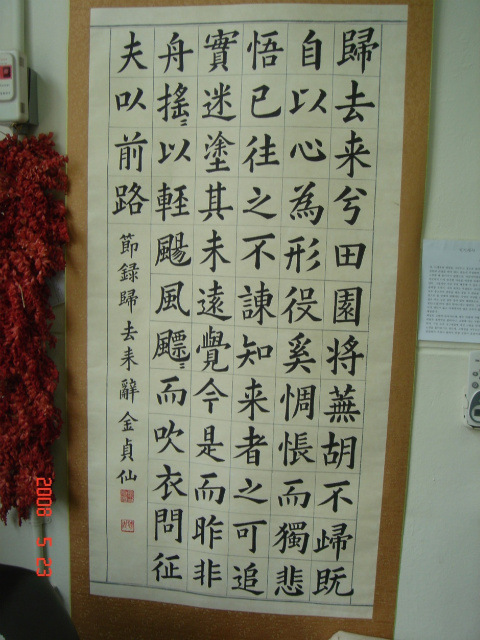 歸去来兮田園将蕪胡不歸既
自以心為形役奚惆悵而獨悲
悟已往之不諫知来者之可追
實迷塗其未遠覺今是而昨非
舟搖〻以輕颺風飄〻而吹衣問征
夫㕥前路
節録歸去来辭 金貞仙
2008 5 23